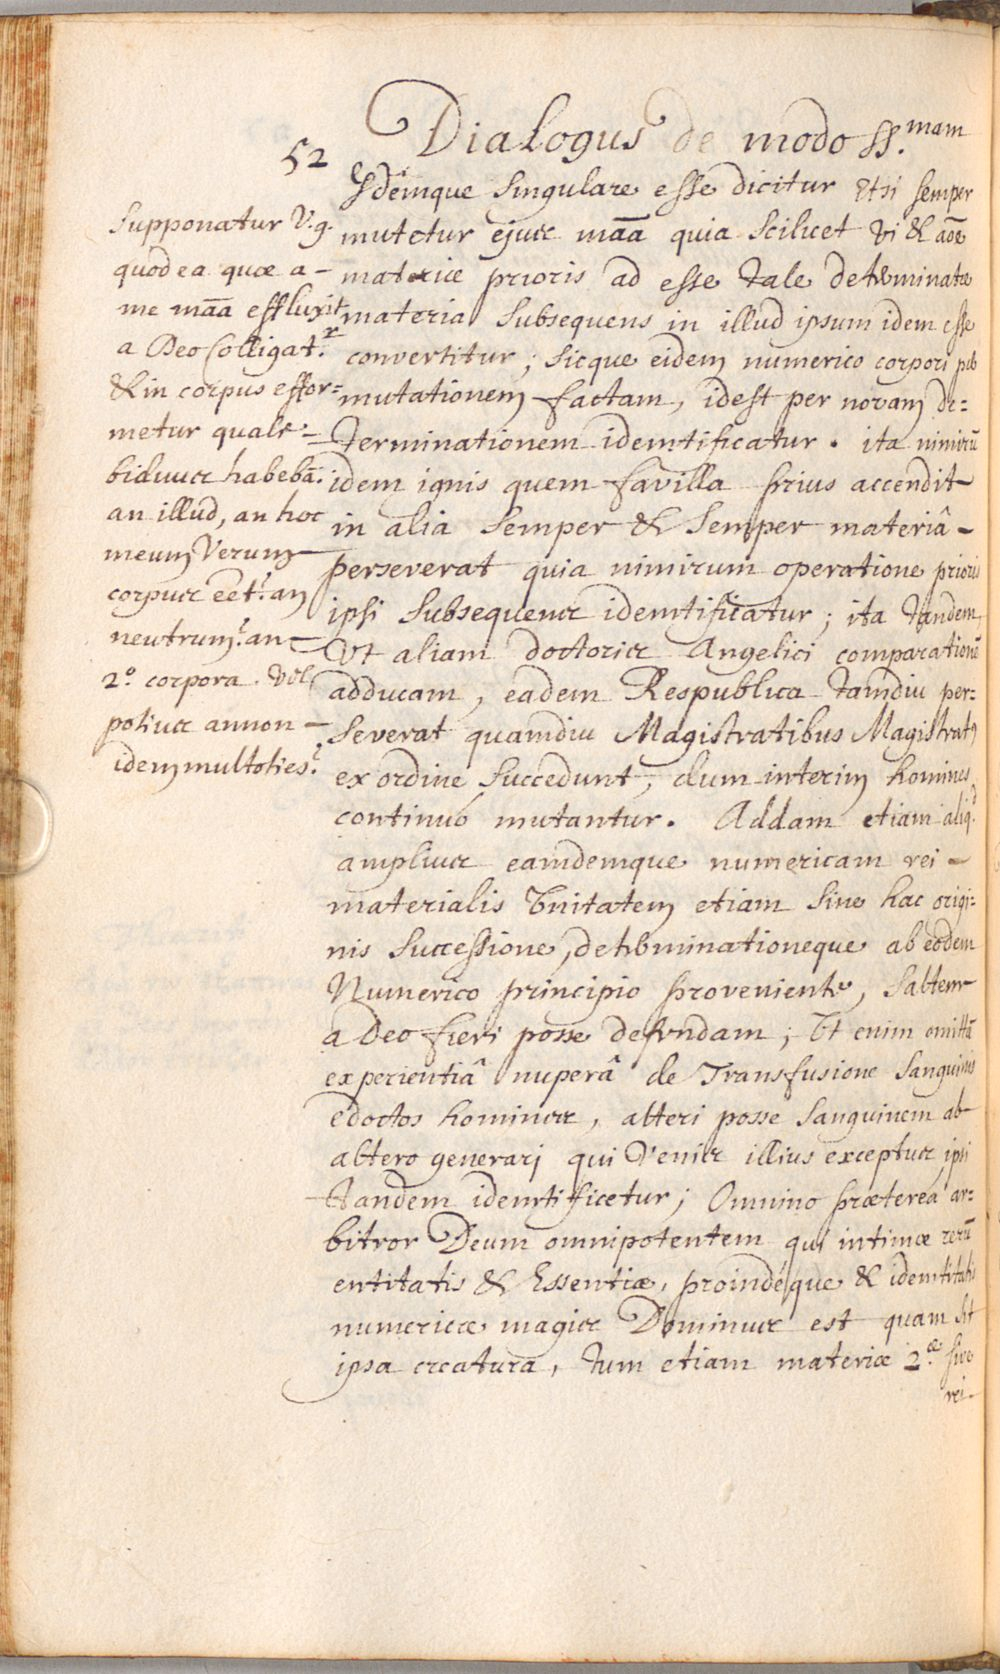 52
Dialogus de modo SS.mam
Supponatur V.g.
quod ea quæ a-
me mãa effluxit
a Deo Colligat.r
& in corpus effor=
metur quale =
biduus habebã.
an illud, an hoc
meum Verum
corpus eēt? an
neutrum? an
2.º corpora. vel
potius annon -
idem multoties?
Idemque singulare esse dicitur etsi semper
mutetur ejus mãa quia Scilicet vi & aõe
materiæ prioris ad esse tale determinatæ
materia Subsequens in illud ipsum idem esse
convertitur; sicque eidem numerico corpori pōb
mutationem factam, idest per novam de=
terminationem identificatur. ita nimirũ
idem ignis quem favilla prius accendit
in alia Semper & Semper materiâ -
perseverat quia nimirum operatione prioris
ipsi Subsequens identificatur; ita tandem
Vt aliam doctoris Angelici comparationẽ
adducam, eadem Respublica tamdiu per=
severat quamdiu Magistratibus Magistratus
ex ordine Succedunt, dum interim homines
continuó mutantur. Addam etiam aliq.d
amplius eamdemque numericam rei -
materialis Vnitatem etiam Sine hac origi=
nis Successione, determinationeque ab eodem
Numerico principio proveniente, Saltem
a Deo fieri posse defendam; Vt enim omittã
experientiâ nuperâ de Transfusione Sanguinis
edoctos homines, alteri posse Sanguinem ab
altero generari qui Venis illius exceptus, ipsi
tandem identificetur; Omnino præterea ar=
bitror Deum omnipotentem qui intimæ rerũ
entitatis & Essentiæ, proindéque & identitatis
numericæ magis Dominus est quam sit
ipsa creatura, tum etiam materiæ 2.æ sive
rei